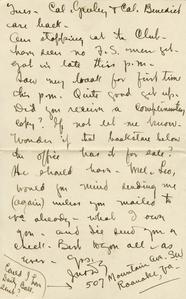 Tues - Cal, Greeley & Col. Benedict
care back.
Am stopping at the Club -
have seen no F.S. men yet
got in late this p.m.
Saw my book for first time
this p.m. Quite good get up.
Did you receive a complimentary
copy? If not let me know.
Wonder if the bookstore below
the office has it for sale?
He should have - Well, Leo,
would you mind sending me
(again) unless you mailed to
me already - what I own
you - and I'll send you a
check - Best to you all - as
ever -
507 Mountain Ave. SW
Roanoke, Va.
Could I